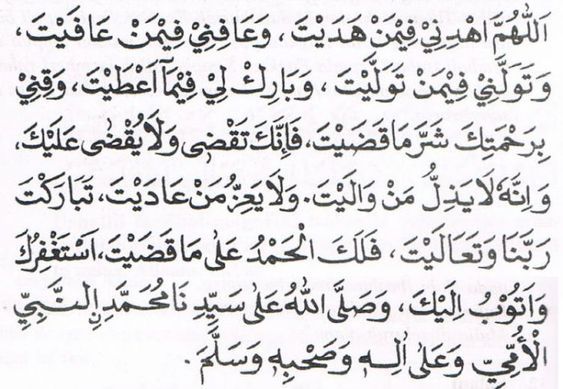 اَللّٰهُمَّ اهْدِنِيْ فِيْمَنْ هَدَيْتَ ، وَعَافِنِيْ فِيْمَنْ عَافَيْتَ ،
وَتَوَلَّنِيْ فِيْمَنْ تَوَلَّيْتَ ، وَبَارِكْ لِيْ فِيْمَآ اَعْطَيْتَ ، وَقِنِيْ
بِرَحْمَتِكَ شَرَّ مَا قَضَيْتَ، فَاِنَّكَ تَقْضِى وَلَا يُقْضٰى عَلَيْكَ،
وَاِنَّهُ لَا يَذِلُّ مَنْ وَالَيْتَ. وَلَا يَعِزُّ مَنْ عَادَيْتَ، تَبَارَكْتَ
رَبَّنَا وَتَعَالَيْتَ ، فَلَكَ الْحَمْدُ عَلٰى مَا قَضَيْتَ، اَسْتَغْفِرُكَ
وَاَتُوْبُ اِلَيْكَ ، وَصَلَّى اللّٰهُ عَلٰى سَيِّدِنَا مُحَمَّدِ ࣙالنَّبِيِّ
الْاُمِّيِّ وَعَلٰى اٰلِهٖ وَصَحْبِهٖ وَسَلَّمَ.